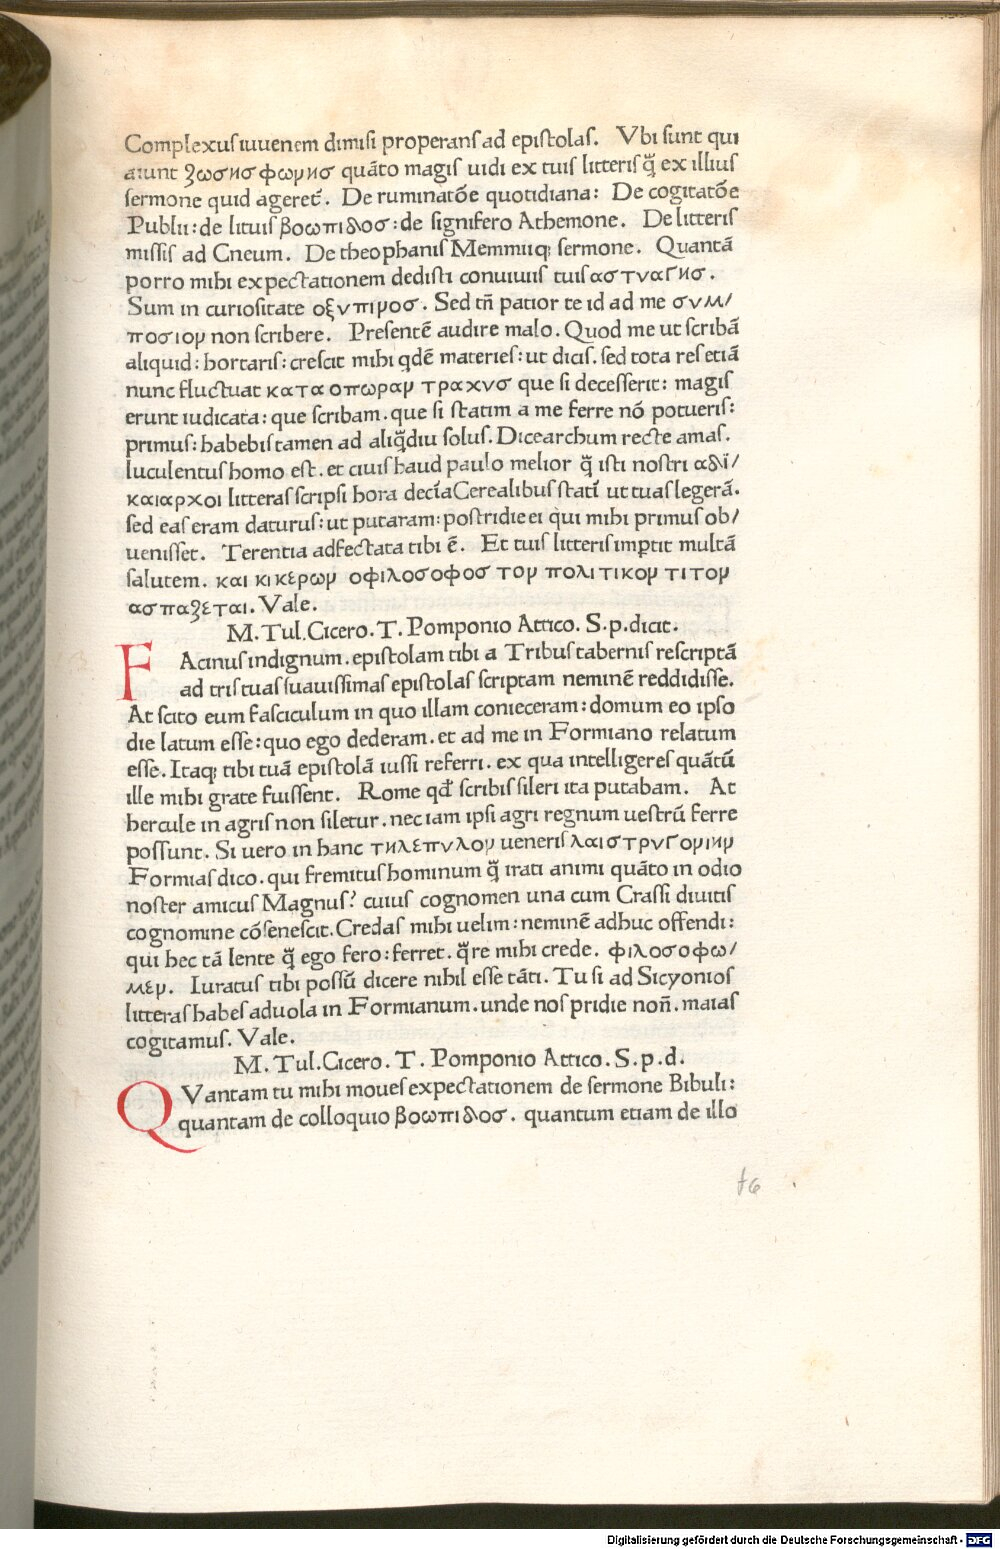 Complexus iuuenem dimisi properans ad epistolas. Vbi sunt qui
aiunt ζωσησ φωνησ quãto magis uidi ex tuis litteris q̃ ex illius
sermone quid ageret̃. De ruminatõe quotidiana: De cogitatõe
Publii: de lituis βοωπιδοσ: de signifero Athemone. De litteris
missis ad Cneum. De theophanis Memmiiq; sermone. Quantã
porro mihi expectationem dedisti conuiuiis tuis αστναγησ.
Sum in curiositate οξνπινοσ. Sed tñ patior te id ad me σνμ/
ποσιον non scribere. Presentẽ audire malo. Quod me ut scribã
aliquid: hortaris: crescit mihi qdẽ materies: ut dicis. sed tota res etiã
nunc fluctuat κατα οπωραν τραχνσ que si decesserit: magis
erunt iudicata: que scribam. que si statim a me ferre nõ potueris:
primus: habebis tamen ad aliq̃diu solus. Dicearchum recte amas.
luculentus homo est. et ciuis haud paulo melior q̃ isti nostri αδι/
καιαρχοι litteras scripsi hora decĩa Cerealibus statĩ ut tuas legerã.
sed eas eram daturus: ut putaram: postridie ei qui mihi primus ob/
uenisset. Terentia adfectata tibi ẽ. Et tuis litteris imptit multã
salutem. και κικερων οφιλοσοφοσ τον πολιτικον τιτον
ασπαζεται. Vale.
M. Tul. Cicero. T. Pomponio Attico. S. p. dicit.
FAcinus indignum. epistolam tibi a Tribus tabernis rescriptã
ad tris tuas suauissimas epistolas scriptam neminẽ reddidisse.
At scito eum fasciculum in quo illam conieceram: domum eo ipso
die latum esse: quo ego dederam. et ad me in Formiano relatum
esse. Itaq; tibi tuã epistolã iussi referri. ex qua intelligeres quãtũ
ille mihi grate fuissent. Rome qd̃ scribis sileri ita putabam. At
hercule in agris non siletur. nec iam ipsi agri regnum uestrũ ferre
possunt. Si uero in hanc τηλεπνλον ueneris λαιστρνγονιην
Formias dico. qui fremitus hominum q̃ irati animi quãto in odio
noster amicus Magnus? cuius cognomen una cum Crassi diuitis
cognomine cõsenescit. Credas mihi uelim: neminẽ adhuc offendi:
qui hec tã lente q̃ ego fero: ferret. q̃re mihi crede. φιλοσοφω/
μεν. Iuratus tibi possũ dicere nihil esse tãti. Tu si ad Sicyonios
litteras habes aduola in Formianum. unde nos pridie noñ. maias
cogitamus. Vale.
M. Tul. Cicero. T. Pomponio Attico. S. p. d.
QVantam tu mihi moues expectationem de sermone Bibuli:
quantam de colloquio βοωπιδοσ. quantum etiam de illo
Digitalisierung gefördert durch die Deutsche Forschungsgemeinschaft - DFG